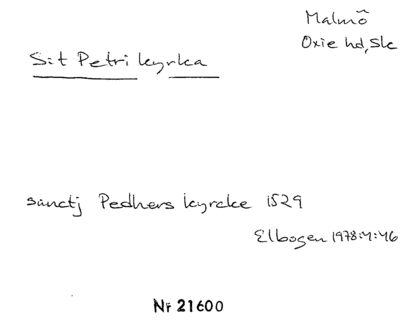 Malmö
Oxie hd, Sk
S:t Petri kyrka
sanctj Pedhers kyrcke 1529
Elbogen 1978:4:46
Nr 21600